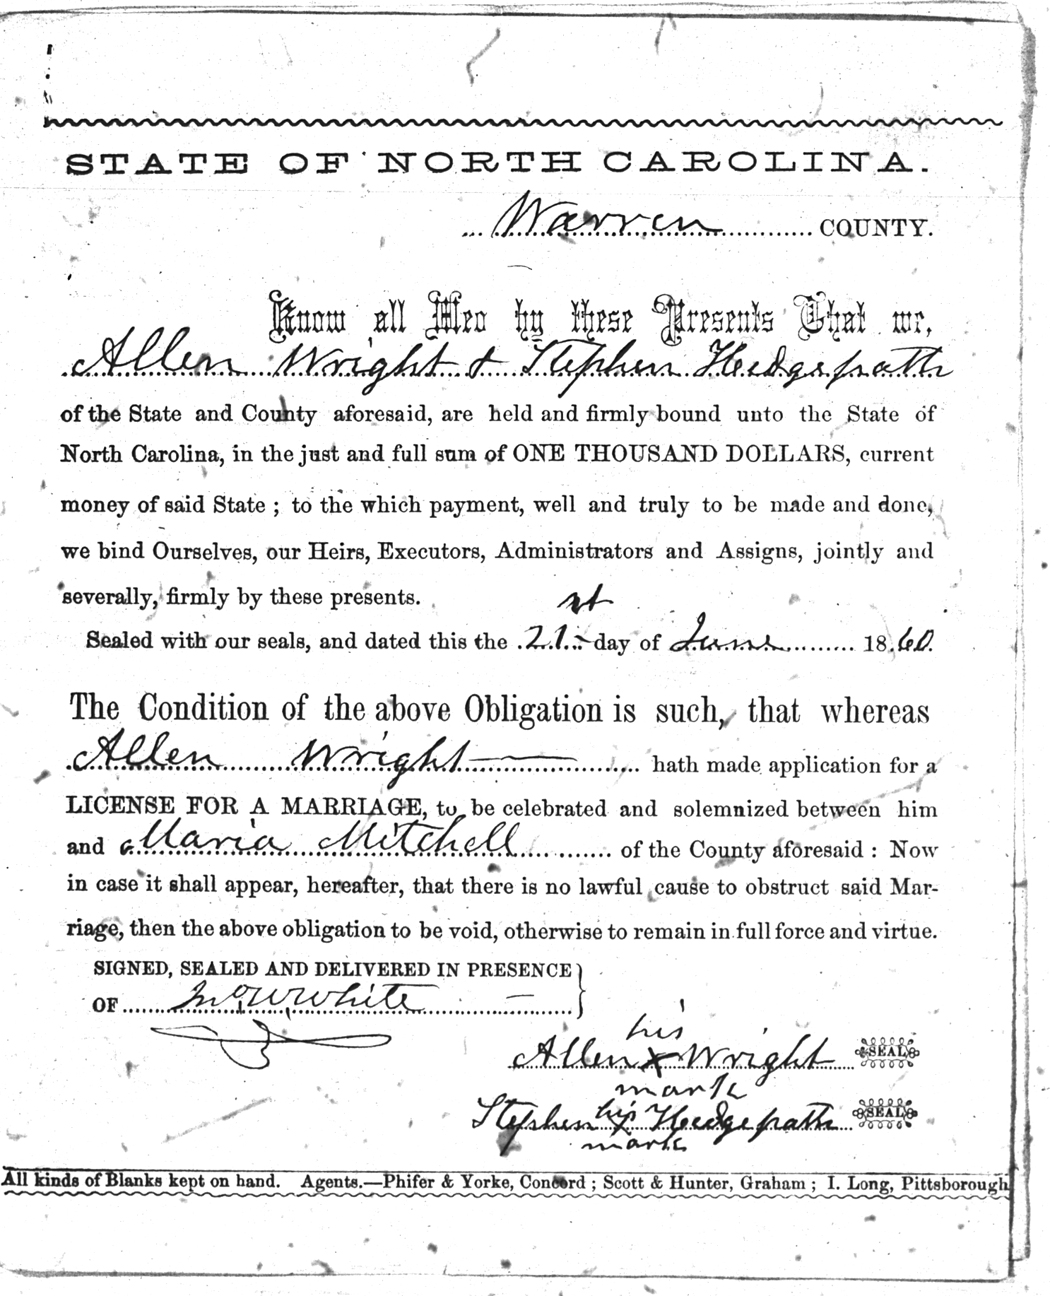 STATE OF NORTH CAROLINA.
Warren COUNTY.
Know all Men by these Presents That we,
Allen Wright & Stephen Hedgepath
of the State and County aforesaid, are held and firmly bound unto the State of
North Carolina, in the just and full sum of ONE THOUSAND DOLLARS, current
money of said State ; to the which payment, well and truly to be made and done,
we bind Ourselves, our Heirs, Executors, Administrators and Assigns, jointly and
severally, firmly by these presents.
Sealed with our seals, and dated this the 21st day of June 1860.
The Condition of the above Obligation is such, that whereas
Allen Wright hath made application for a
LICENSE FOR A MARRIAGE, to be celebrated and solemnized between him
and Maria Mitchell of the County aforesaid : Now
in case it shall appear, hereafter, that there is no lawful cause to obstruct said Mar-
riage, then the above obligation to be void, otherwise to remain in full force and virtue.
SIGNED, SEALED AND DELIVERED IN PRESENCE
OF Jno W White
his
Allen X Wright SEAL
mark
Stephen his X Hedgepath SEAL
mark
All kinds of Blanks kept on hand. Agents.—Phifer & Yorke, Concord ; Scott & Hunter, Graham ; I. Long, Pittsborough